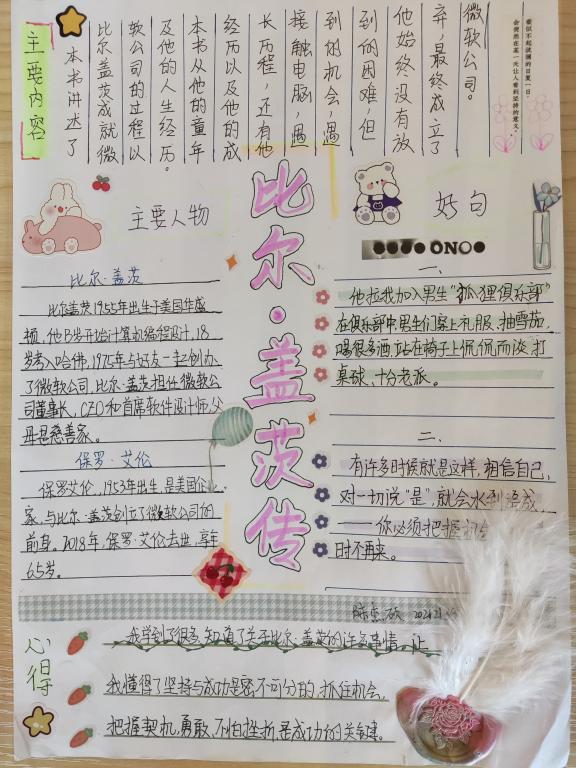 主要内容
本书讲述了
比尔·盖茨成就微
软公司的过程以
及他的人生经历。
本书从他的童年
经历以及他的成
长历程，还有他
接触电脑，遇
到的机会，遇
到的困难，但
他始终没有放
弃，最终成立了
微软公司。
看似不起波澜的日复一日，
会突然在某一天让人看到坚持的意义。
比尔·盖茨传
主要人物
比尔·盖茨
比尔盖茨1955年出生于美国华盛
顿，他13岁开始计算机编程设计，18
岁考入哈佛，1975年与好友一起创办
了微软公司，比尔·盖茨担任微软公
司董事长，CEO和首席软件设计师，父
母是慈善家。
保罗·艾伦
保罗艾伦，1953年出生，是美国企业
家，与比尔·盖茨创立了微软公司的
前身。2018年，保罗·艾伦去世，享年
65岁。
好句
一、
他拉我加入男生“狐狸俱乐部”
在俱乐部中，男生们穿上礼服，抽雪茄，
喝很多酒，站在椅子上侃侃而谈，打
桌球，十分老派。
二、
有许多时候就是这样，相信自己，
对一切说“是”，就会水到渠成
——你必须把握机会
时不再来。
心得
我学到了很多，知道了关于比尔·盖茨的许多事情，让
我懂得了坚持与成功是密不可分的，抓住机会，
把握契机，勇敢、不怕挫折，是成功的关键。